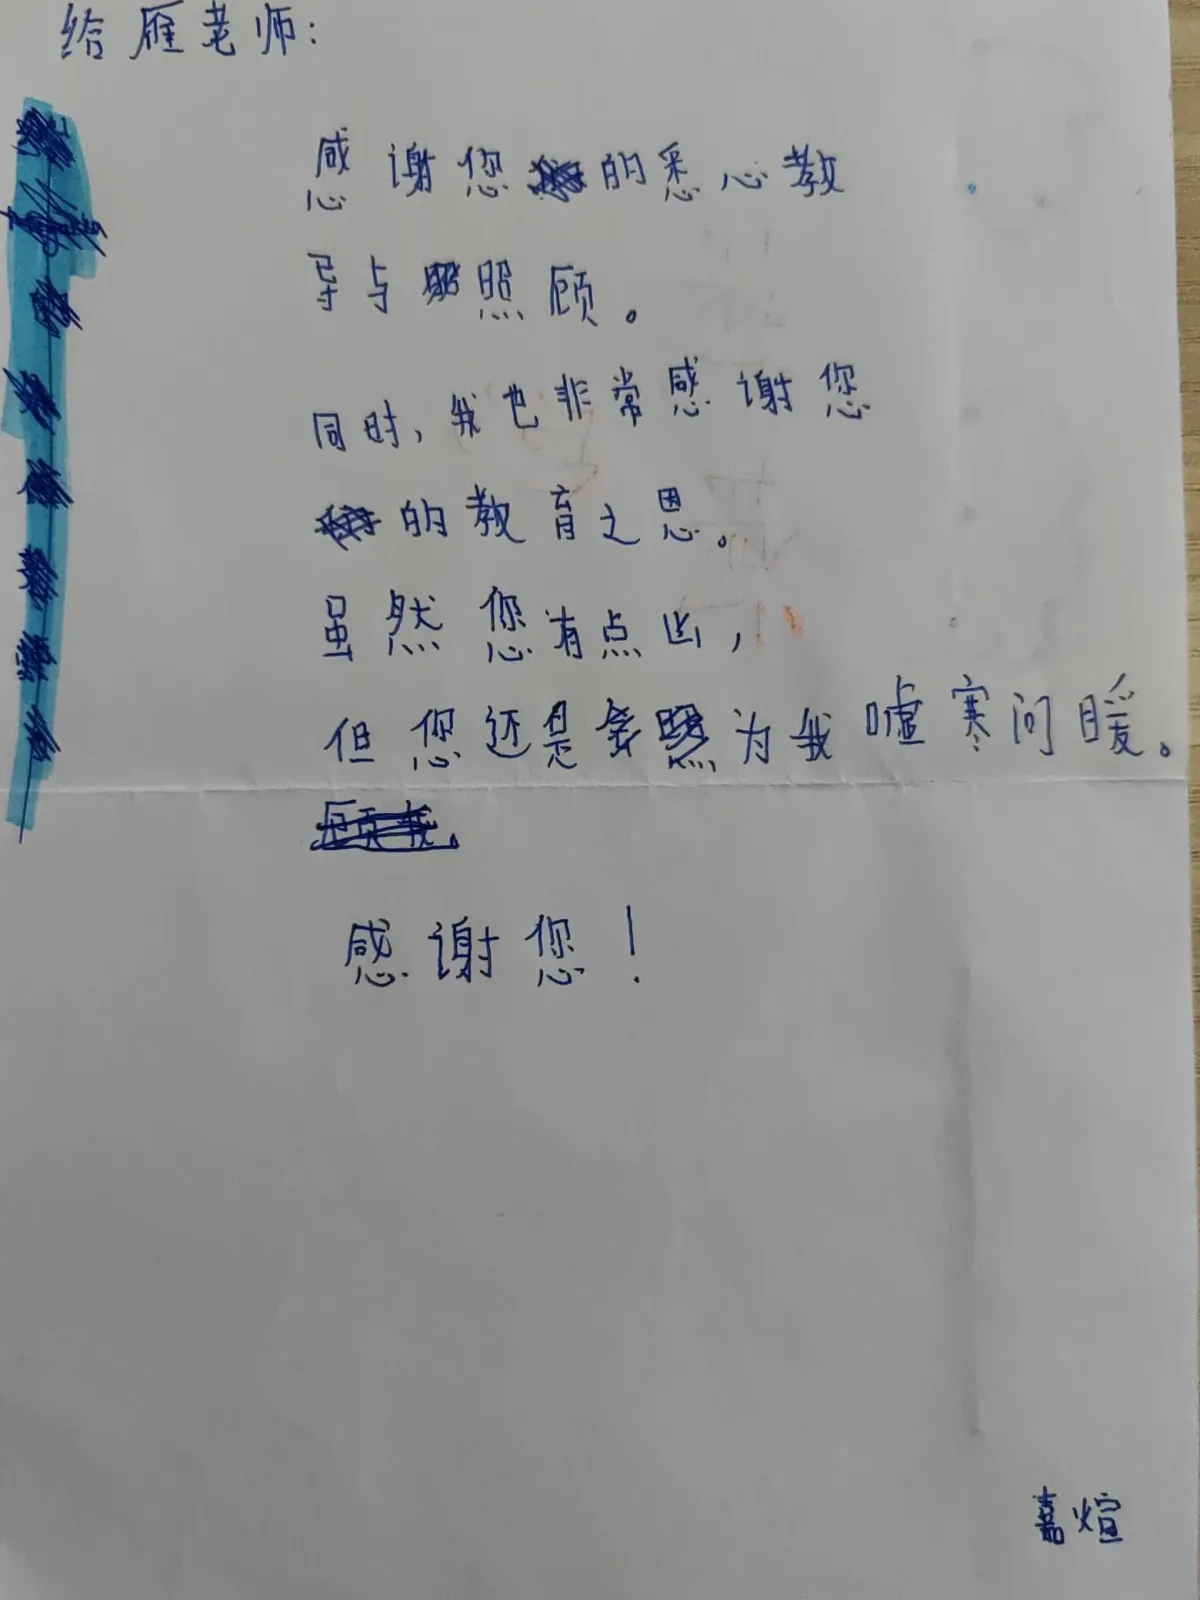 给雁老师：
感谢您的悉心教
导与照顾。
同时，我也非常感谢您
的教育之恩。
虽然您有点凶，
但您还是会为我嘘寒问暖。
感谢您！
嘉煊